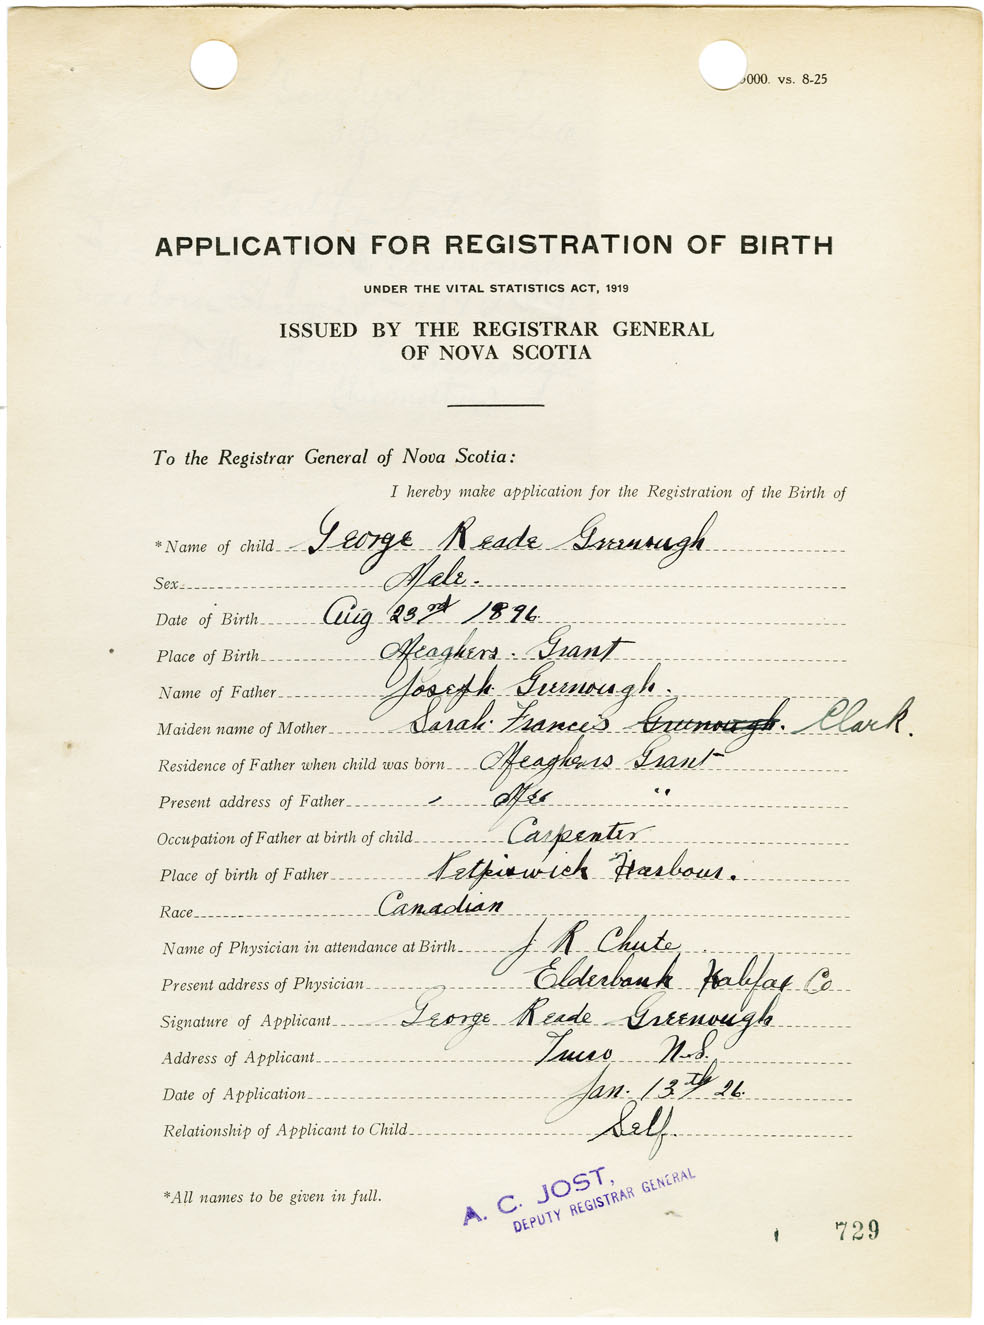 000. vs. 8-25
APPLICATION FOR REGISTRATION OF BIRTH
UNDER THE VITAL STATISTICS ACT, 1919
ISSUED BY THE REGISTRAR GENERAL
OF NOVA SCOTIA
To the Registrar General of Nova Scotia:
I hereby make application for the Registration of the Birth of
*Name of child George Reade Greenough
Sex Male.
Date of Birth Aug 23rd 1896
Place of Birth Meaghers. Grant
Name of Father Joseph Greenough.
Maiden name of Mother Sarah Francis Greenough. Clark.
Residence of Father when child was born Meaghers Grant
Present address of Father " "
Occupation of Father at birth of child Carpenter
Place of birth of Father Harbour.
Race Canadian
Name of Physician in attendance at Birth J R Chute
Present address of Physician Elderbank Halifax Co
Signature of Applicant George Reade Greenough
Address of Applicant Truro N.S.
Date of Application Jan. 13th 26.
Relationship of Applicant to Child Self.
*All names to be given in full.
A. C. JOST,
DEPUTY REGISTRAR GENERAL
729